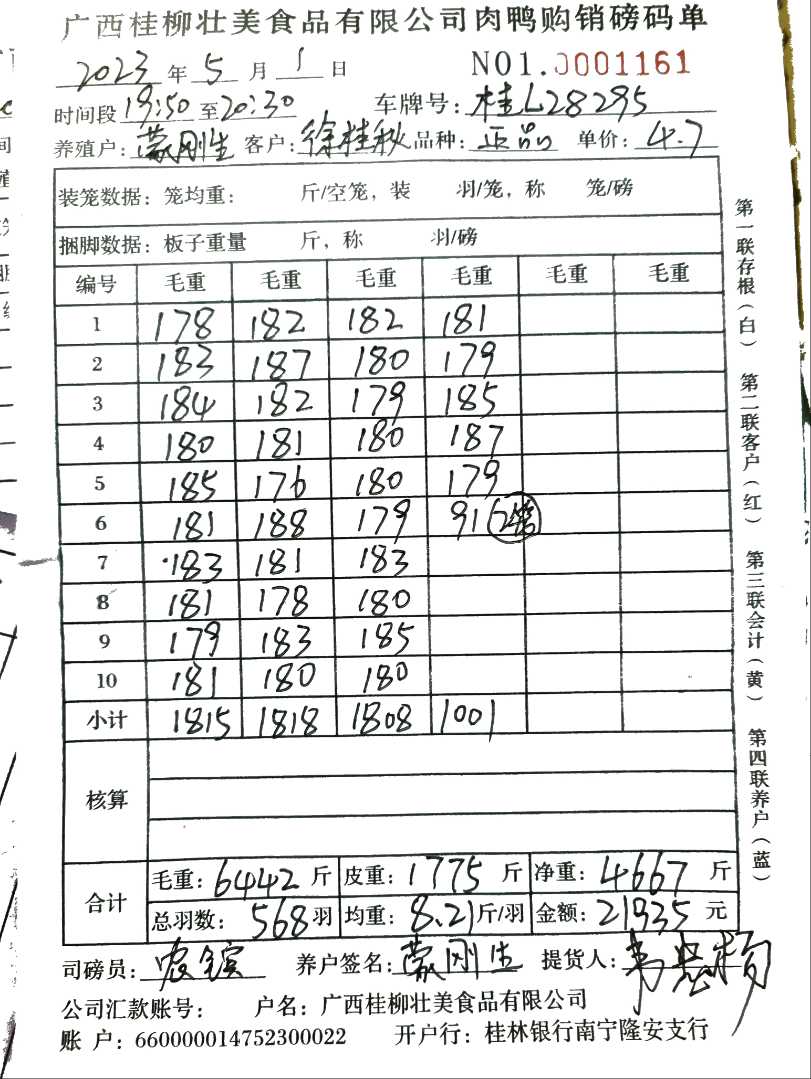 广西桂柳壮美食品有限公司肉鸭购销磅码单
2023 年 5 月 1 日 NO1.0001161
时间段 19:50 至 20:30 车牌号: 桂L28295
养殖户: 蒙刚生 客户: 徐桂秋 品种: 正品 单价: 4.7
装笼数据: 笼均重: 斤/空笼, 装 羽/笼, 称 笼/磅
捆脚数据: 板子重量 斤, 称 羽/磅
编号 毛重 毛重 毛重 毛重 毛重 毛重
1 178 182 182 181
2 183 187 180 179
3 184 182 179 185
4 180 181 180 187
5 185 176 180 179
6 181 188 179 91
7 183 181 183
8 181 178 180
9 179 183 185
10 181 180 180
小计 1815 1818 1808 1001
核算
合计 毛重: 6442 斤 皮重: 1775 斤 净重: 4667 斤
总羽数: 568 羽 均重: 8.21 斤/羽 金额: 21935 元
司磅员: 农 养户签名: 蒙刚生 提货人: 韦
公司汇款账号: 户名: 广西桂柳壮美食品有限公司
账 户: 660000014752300022 开户行: 桂林银行南宁隆安支行
第一联存根(白) 第二联客户(红) 第三联会计(黄) 第四联养户(蓝)